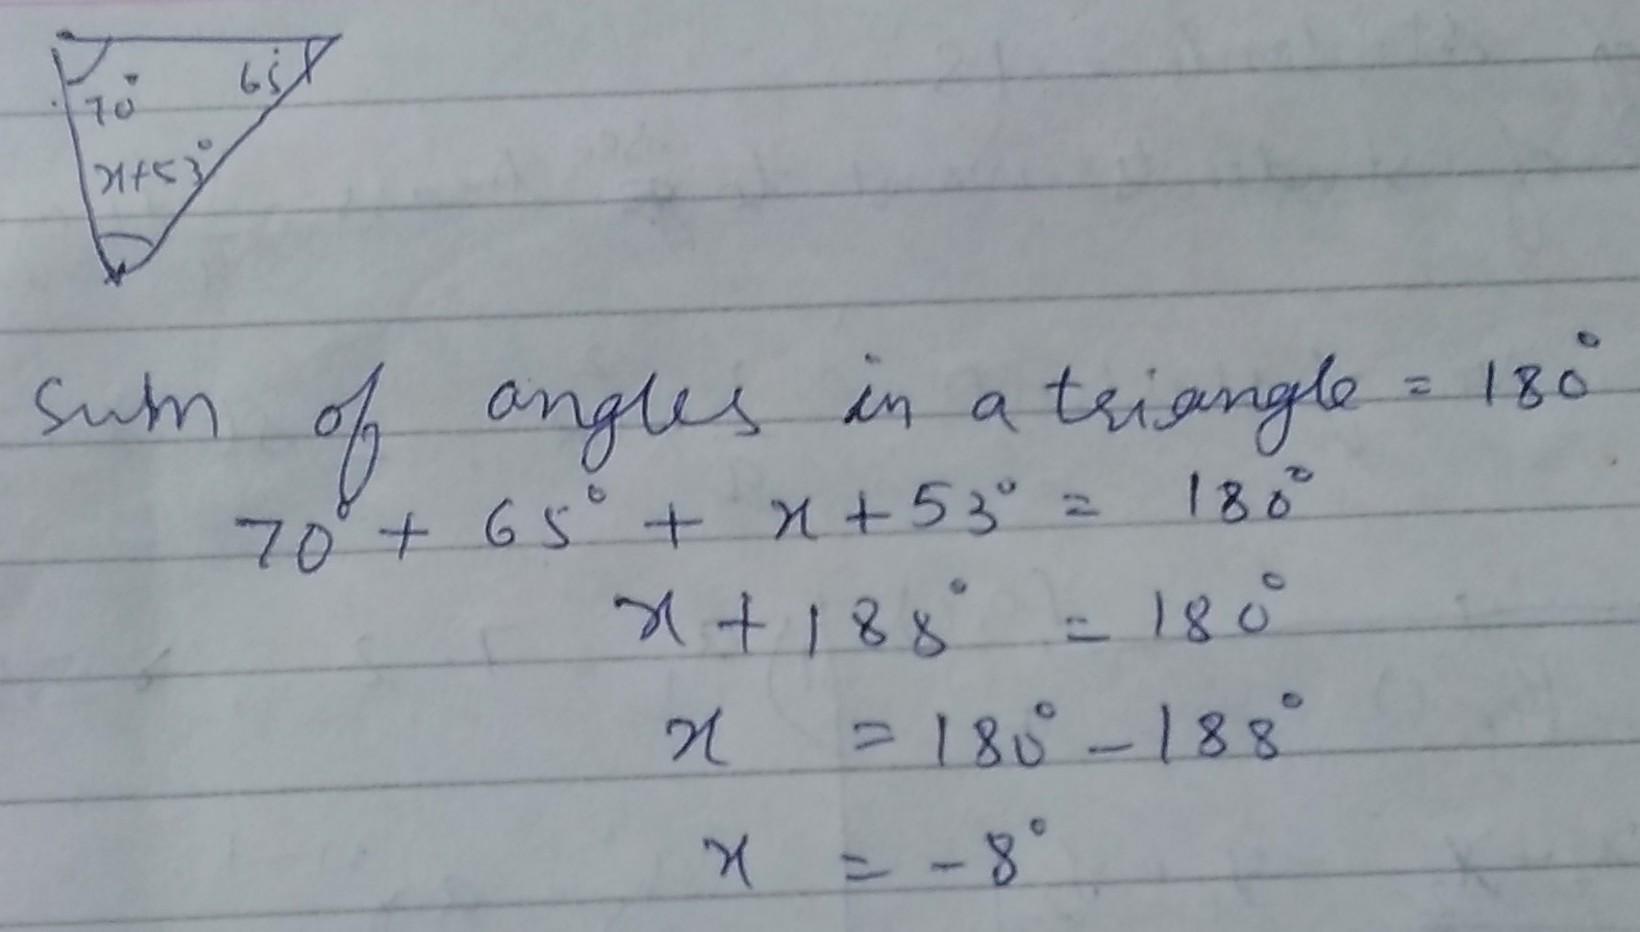 70° 65°
x+53°
Sum of angles in a triangle = 180°
70° + 65° + x + 53° = 180°
x + 188° = 180°
x = 180° - 188°
x = -8°